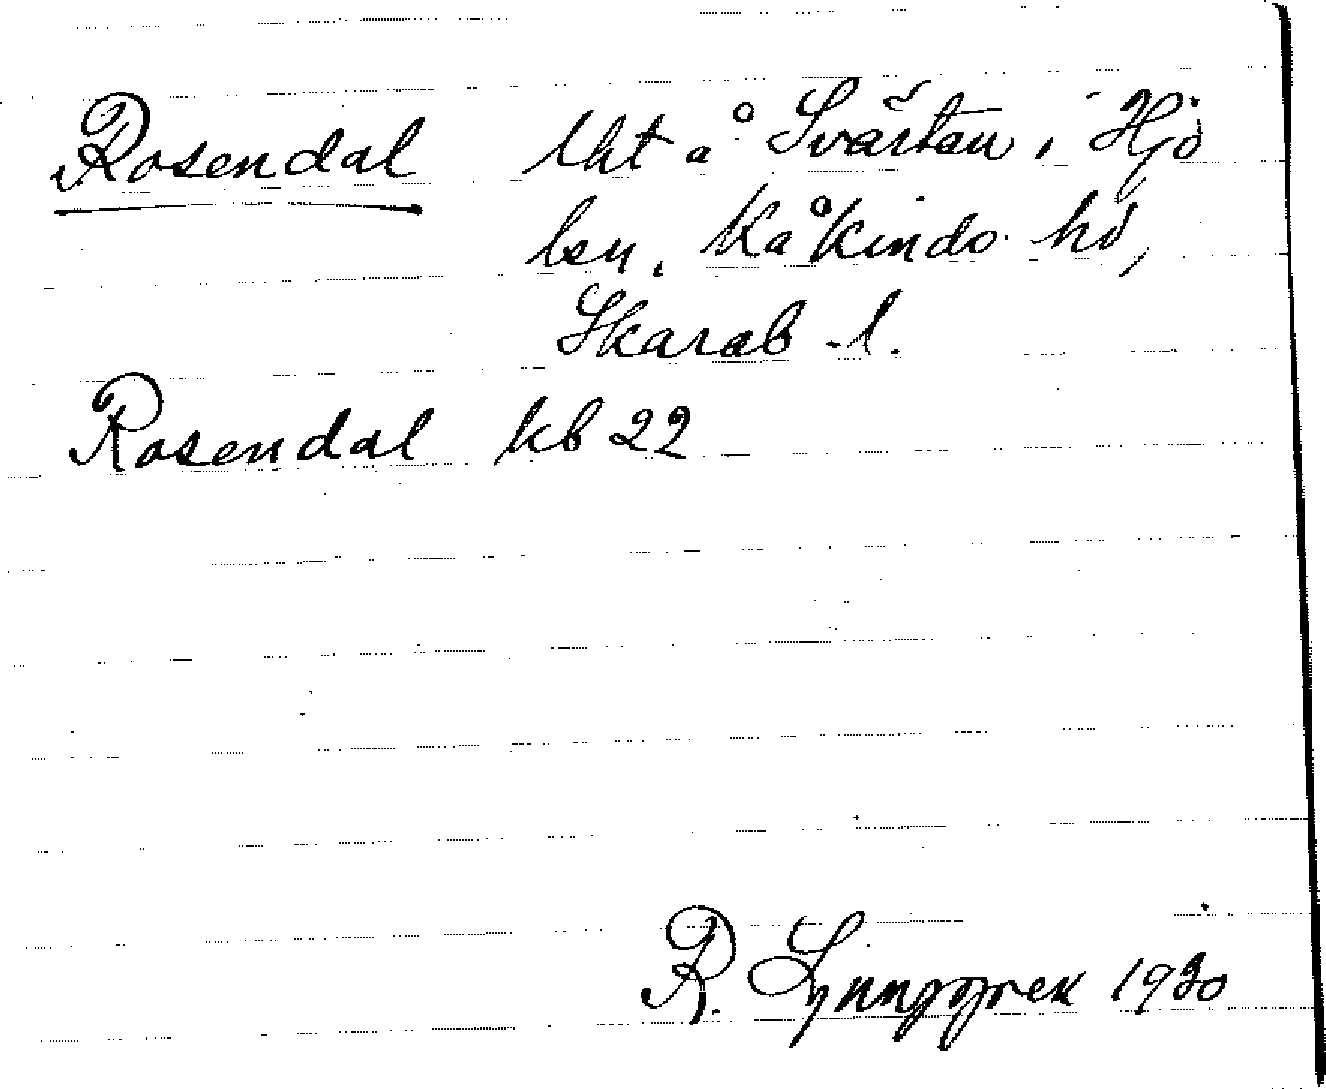 Rosendal lht å Svärtan i Hjo
lsn, Kåkindo hd,
Skarab. l.
Rosendal kb 22
R. Ljunggren 1930